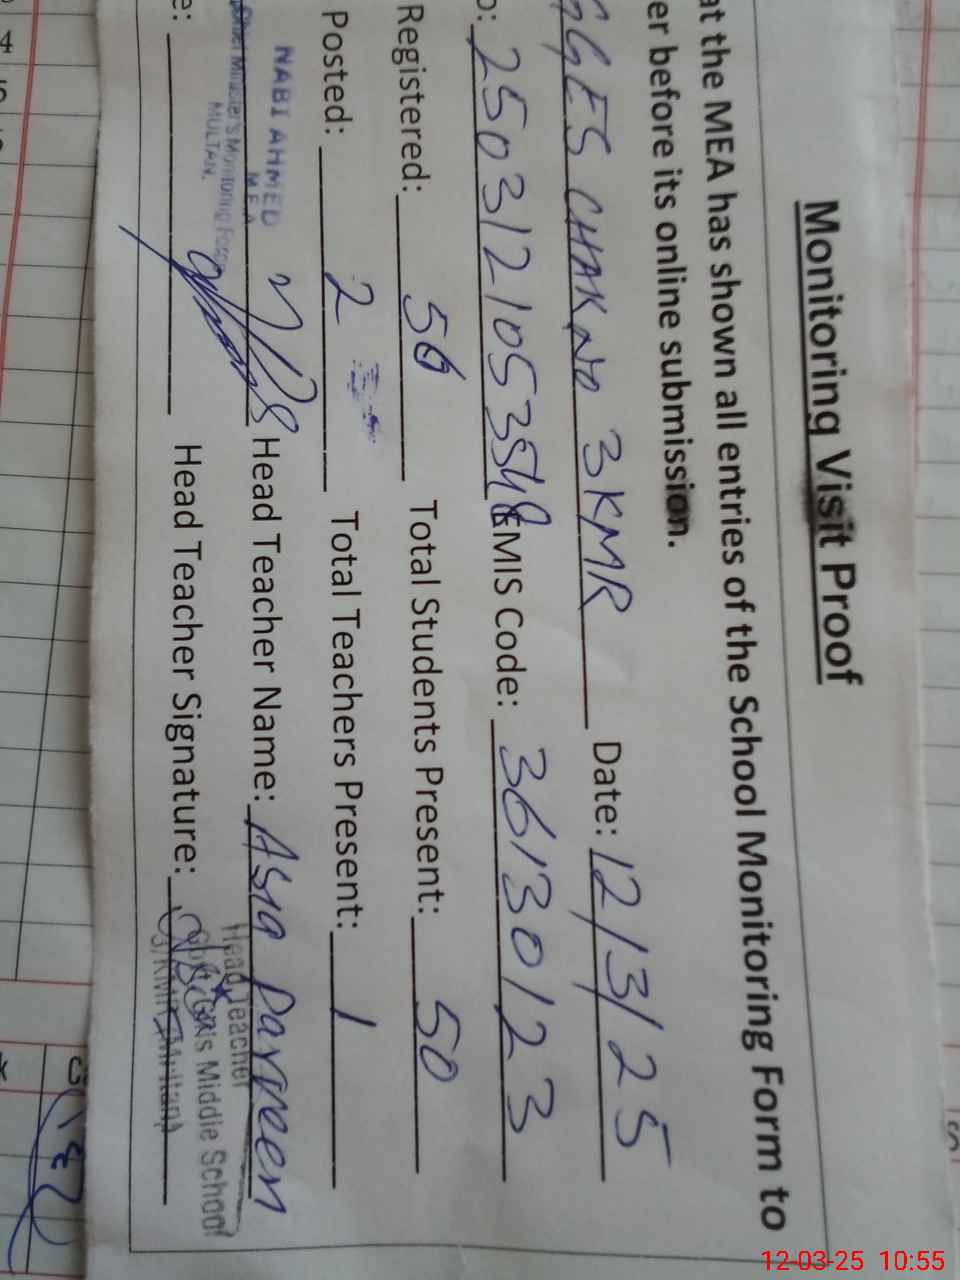 Monitoring Visit Proof
at the MEA has shown all entries of the School Monitoring Form to
er before its online submission.
GGES CHAK No 3KMR Date: 12/3/25
o: 250312105354 EMIS Code: 36130123
Registered: 50 Total Students Present: 50
Posted: 2 Total Teachers Present: 1
NABI AHMED
M E A
Chief Minister's Monitoring Force
MULTAN.
Head Teacher Name: Asia Parveen
e: Head Teacher Signature:
Head Teacher
Govt Girls Middle School
3/KMR Multan
12-03-25 10:55